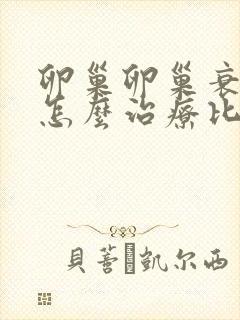 卵巢卵巢衰
怎麼治療比
貝蓍凱尔西